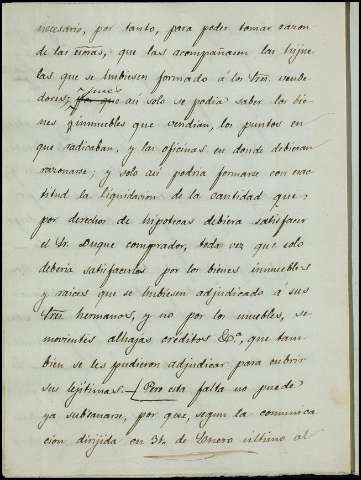 necesario, por tanto, para poder tomar razon
de las escras, que las acompañasen las hijue
las que se hubiesen formado á los Sres. vende
dores; pues
por que así solo se podia saber los bie-
nes inmuebles que vendian, los puntos en
que radicaban, y las oficinas en donde debieran
razonarse; y solo asi podria formarse con exac
titud la liquidacion de la cantidad que,
por derechos de hipotecas debiera satisfacer
el Sr. Duque comprador, toda vez que solo
deberia satisfacerlos por los bienes inmuebles
y raices que se hubiesen adjudicado á sus
Sres. hermanos, y no por los muebles, se-
movientes alhajas creditos &ª, que tam-
bien se les pudieron adjudicar para cubrir
sus legitimas.- Pero esta falta no puede
ya subsanarse, por que, segun la comunica
cion dirijida en 31 de Enero último al